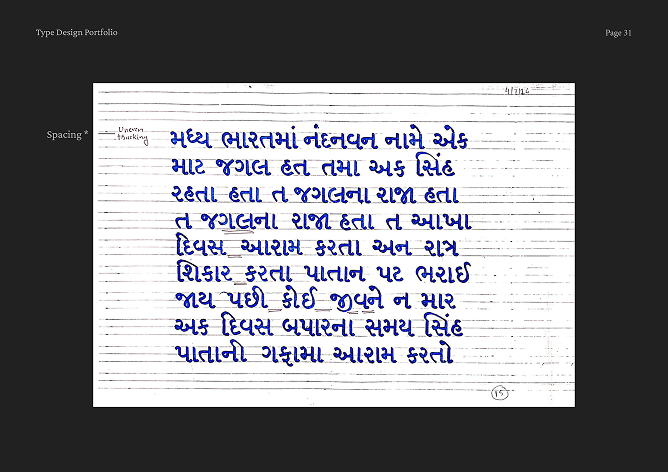 Type Design Portfolio
Page 31
4/7/24
Spacing *
Uneven
tracking
મધ્ય ભારતમાં નંદનવન નામે એક
માટ જગલ હત તમા અક સિંહ
રહતા હતા ત જગલના રાજા હતા
ત જગલના રાજા હતા ત આખા
દિવસ આરામ કરતા અન રાત્ર
શિકાર કરતા પાતાન પટ ભરાઈ
જાય પછી કોઈ જીવને ન માર
અક દિવસ બપારના સમય સિંહ
પાતાની ગફામા આરામ કરતો
15